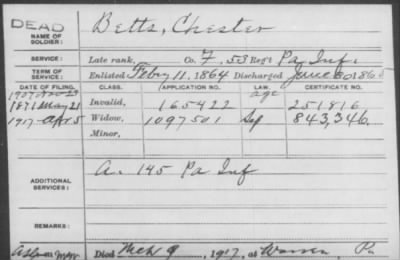 DEAD
NAME OF SOLDIER: Betts, Chester
SERVICE: Late rank, Co. F. 53 Reg't Pa Inf.
TERM OF SERVICE: Enlisted Febry 11, 1864 Discharged June 30 1865
DATE OF FILING. CLASS. APPLICATION NO. LAW. CERTIFICATE NO.
age
1871 May 21 Invalid, 165422 251816
1917 Apr 5 Widow, 1097501 843,346.
Minor,
ADDITIONAL SERVICES: A. 145 Pa Inf
REMARKS:
Died Mch 9, 1917, at Warren, Pa